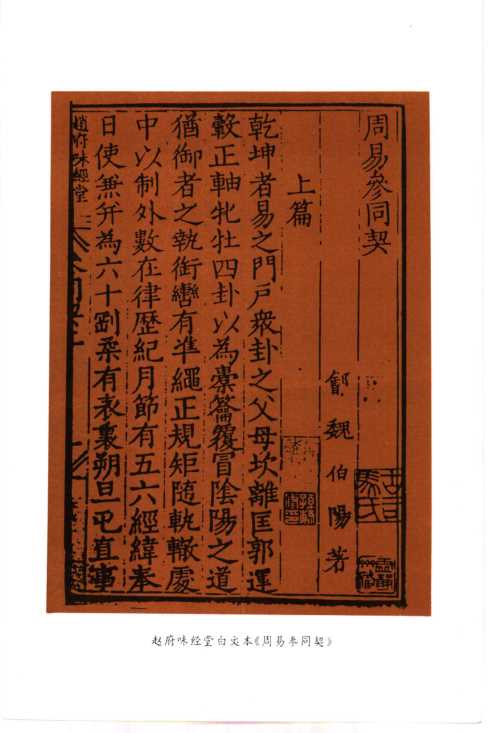 周易參同契
鄶魏伯陽著
上篇
乾坤者易之門戶衆卦之父母坎離匡郭運
轂正軸牝牡四卦以為橐籥覆冒陰陽之道
猶御者之執銜轡有準繩正規矩隨軌轍處
中以制外數在律歷紀月節有五六經緯奉
日使兼并為六十剛柔有表裏朔旦屯直事
趙府味經堂
赵府味经堂白文本《周易参同契》